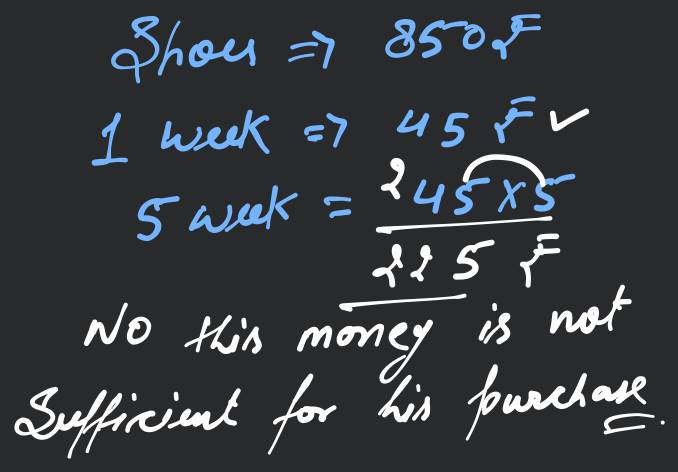 Shoes => 850₣
1 week => 45 ₣ ✓
5 week = 45 x 5
225 ₣
No this money is not
Sufficient for his purchase.